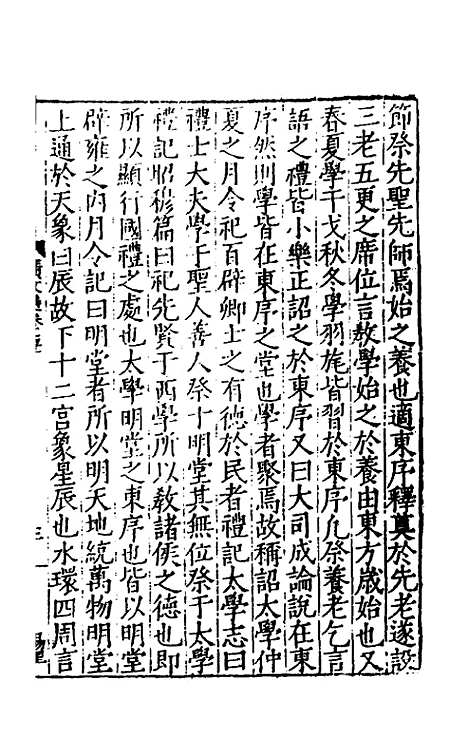 節祭先聖先師焉始之養也適東序釋奠於先老遂設
三老五更之席位言教學始之於養由東方歲始也又
春夏學干戈秋冬學羽旄皆習於東序凡祭養老乞言
語之禮皆小樂正詔之於東序又曰大司成論說在東
序然則學皆在東序之堂也學者聚焉故稱詔太學仲
夏之月令祀百辟卿士之有德於民者禮記太學志曰
禮士大夫學于聖人善人祭于明堂其無位祭于太學
禮記昭穆篇曰祀先賢于西學所以教諸侯之德也即
所以顯行國禮之處也太學明堂之東序也皆以明堂
辟雍之内月令記曰明堂者所以明天地統萬物明堂
上通於天象曰辰故下十二宫象星辰也水環四周言
三